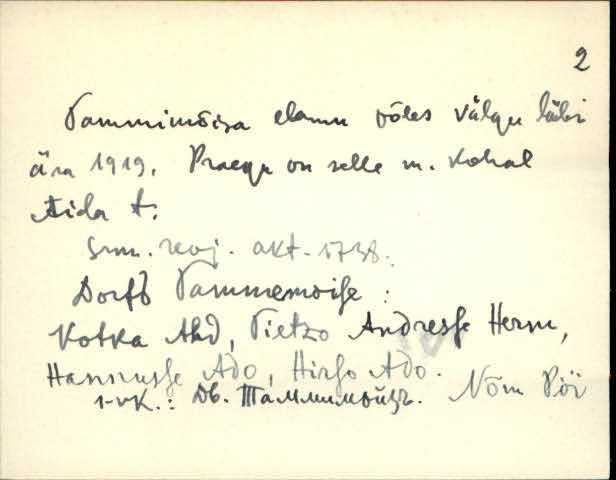 2
Tammimõisa elamu põles välgu läbi
ära 1919. Praegu on selle m. kohal
Aida t.
Srm. revj. akt. 1738.
Dorff Tammemoise :
Kotka Ahd, Tietzo Andresse Herm,
Hannusse Ado, Hirso Ado.
1-vk.: Дв. Таммимőйзъ. Nõm Pöi